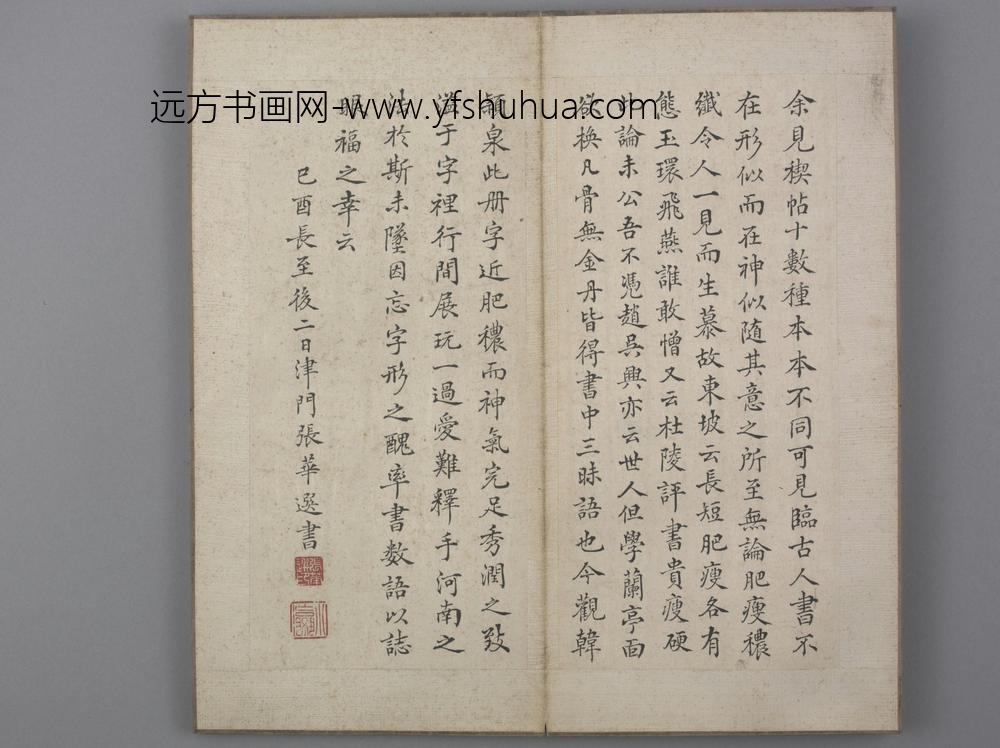 余見稧帖十數種本本不同可見臨古人書不
在形似而在神似随其意之所至無論肥瘦穠
纖令人一見而生慕故東坡云長短肥瘦各有
態玉環飛燕誰敢憎又云杜陵評書貴瘦硬
此論未公吾不憑趙吳興亦云世人但學蘭亭面
欲換凡骨無金丹皆得書中三昧語也今觀韓
穎泉此册字近肥穠而神氣完足秀潤之致
溢于字裡行間展玩一過愛難釋手河南之
法於斯未墜因忘字形之醜率書数語以誌
眼福之幸云
己酉長至後二日津門張華選書
远方书画网-www.yfshuhua.com